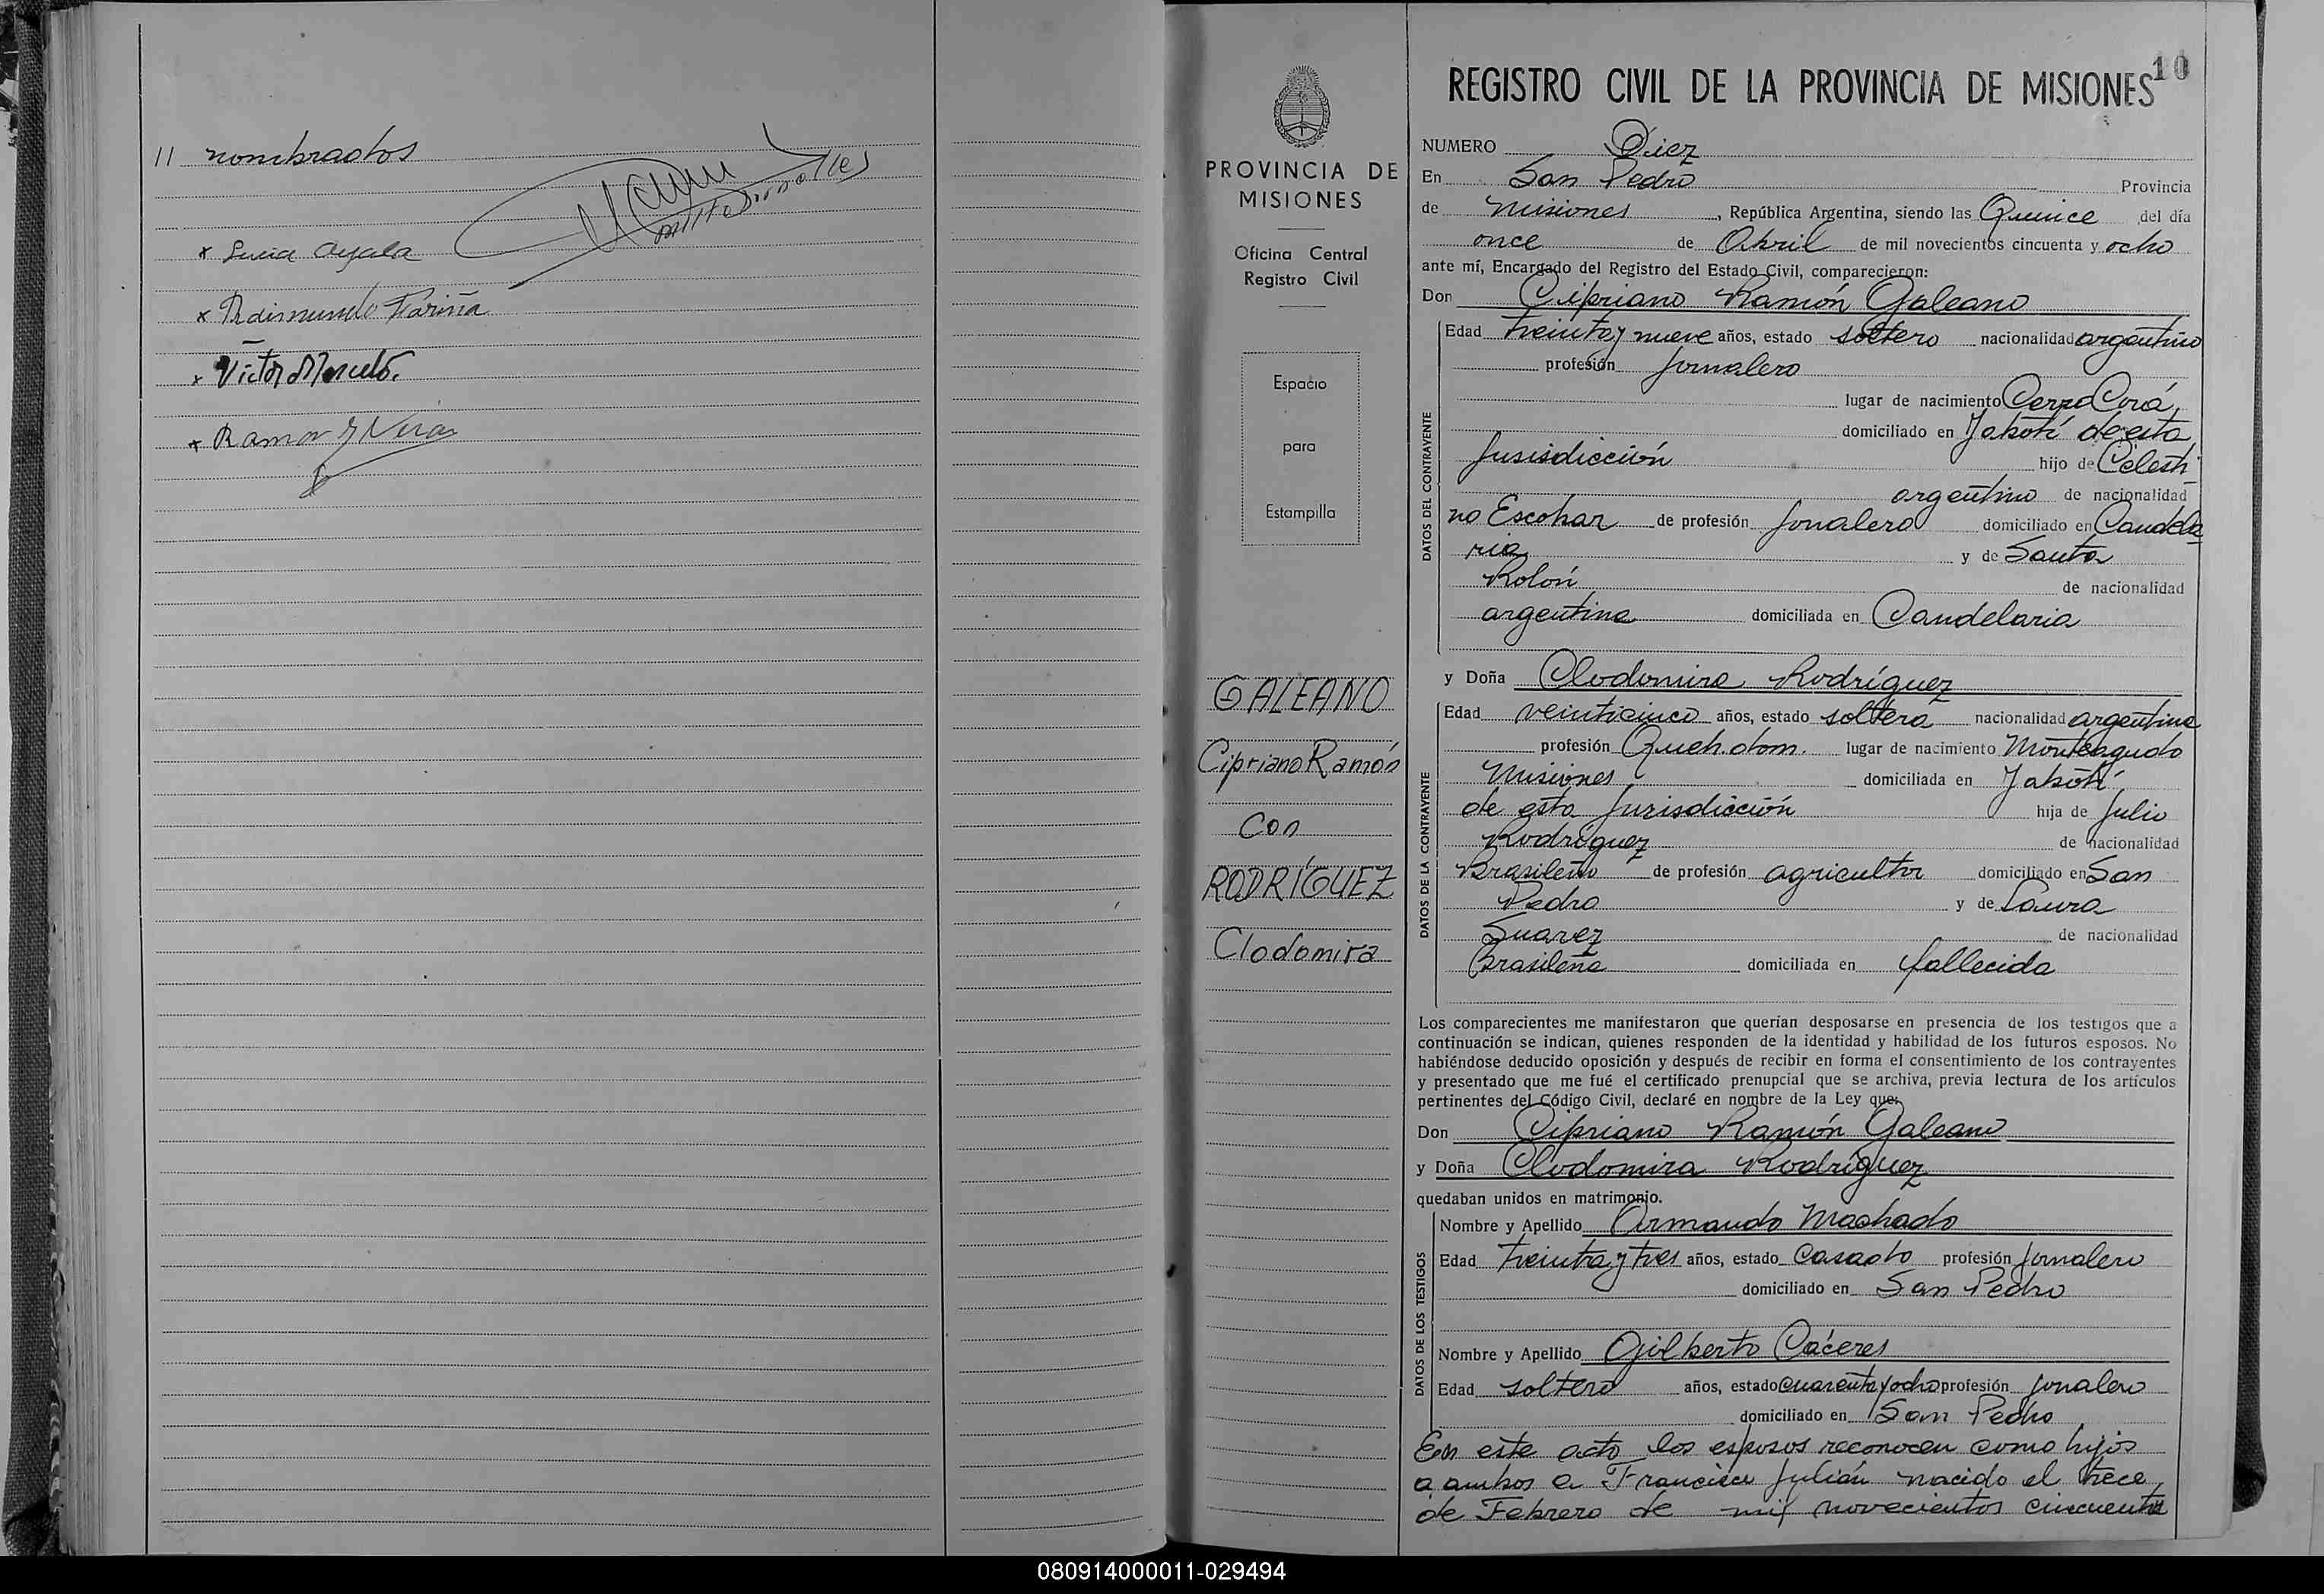 11 nombrados
x Lucia Ayala
x Raimundo Fariña
x Victor
x Ramon
PROVINCIA DE
MISIONES
Oficina Central
Registro Civil
Espacio
para
Estampilla
GALEANO
Cipriano Ramón
Con
RODRÍGUEZ
Clodomira
10
REGISTRO CIVIL DE LA PROVINCIA DE MISIONES
NUMERO Diez
En San Pedro Provincia
de Misiones, República Argentina, siendo las Quince del día
once de Abril de mil novecientos cincuenta y ocho
ante mí, Encargado del Registro del Estado Civil, comparecieron:
Don Cipriano Ramón Galeano
DATOS DEL CONTRAYENTE
Edad treinta y nueve años, estado soltero nacionalidad argentino
profesión Jornalero
lugar de nacimiento Cerro Corá,
domiciliado en Yabotí de esta
Jurisdicción hijo de Celesti-
argentino de nacionalidad
no Escobar de profesión Jonalero domiciliado en Candela
ria y de Santa
Rolón de nacionalidad
argentina domiciliada en Candelaria
y Doña Clodomira Rodríguez
DATOS DE LA CONTRAYENTE
Edad veinticinco años, estado soltera nacionalidad argentina
profesión Queh. dom. lugar de nacimiento Monteagudo
Misiones domiciliada en Yabotí
de esta Jurisdicción hija de Julio
Rodríguez de nacionalidad
Brasileño de profesión agricultor domiciliado en San
Pedro y de Laura
Suarez de nacionalidad
Brasileña domiciliada en fallecida
Los comparecientes me manifestaron que querían desposarse en presencia de los testigos que a
continuación se indican, quienes responden de la identidad y habilidad de los futuros esposos. No
habiéndose deducido oposición y después de recibir en forma el consentimiento de los contrayentes
y presentado que me fué el certificado prenupcial que se archiva, previa lectura de los artículos
pertinentes del Código Civil, declaré en nombre de la Ley que:
Don Cipriano Ramón Galeano
y Doña Clodomira Rodríguez
quedaban unidos en matrimonio.
DATOS DE LOS TESTIGOS
Nombre y Apellido Armando Machado
Edad treinta y tres años, estado Casado profesión Jornalero
domiciliado en San Pedro
Nombre y Apellido Gilberto Cáceres
Edad soltero años, estado cuarenta y ocho profesión Jonalero
domiciliado en San Pedro
En este acto los esposos reconocen como hijos
a ambos a Francisco Julián nacido el trece
de Febrero de mil novecientos cincuenta
080914000011-029494